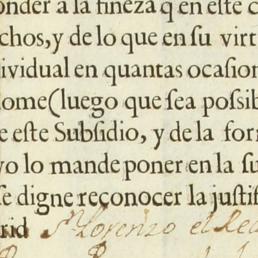 onder a la fineza q en este c
chos, y de lo que en su virt
ividual en quantas ocasion
ome(luego que sea possib
e este Subsidio, y de la for
yo lo mande poner en la su
se digne reconocer la justif
rid Sn. Lorenzo el Rea